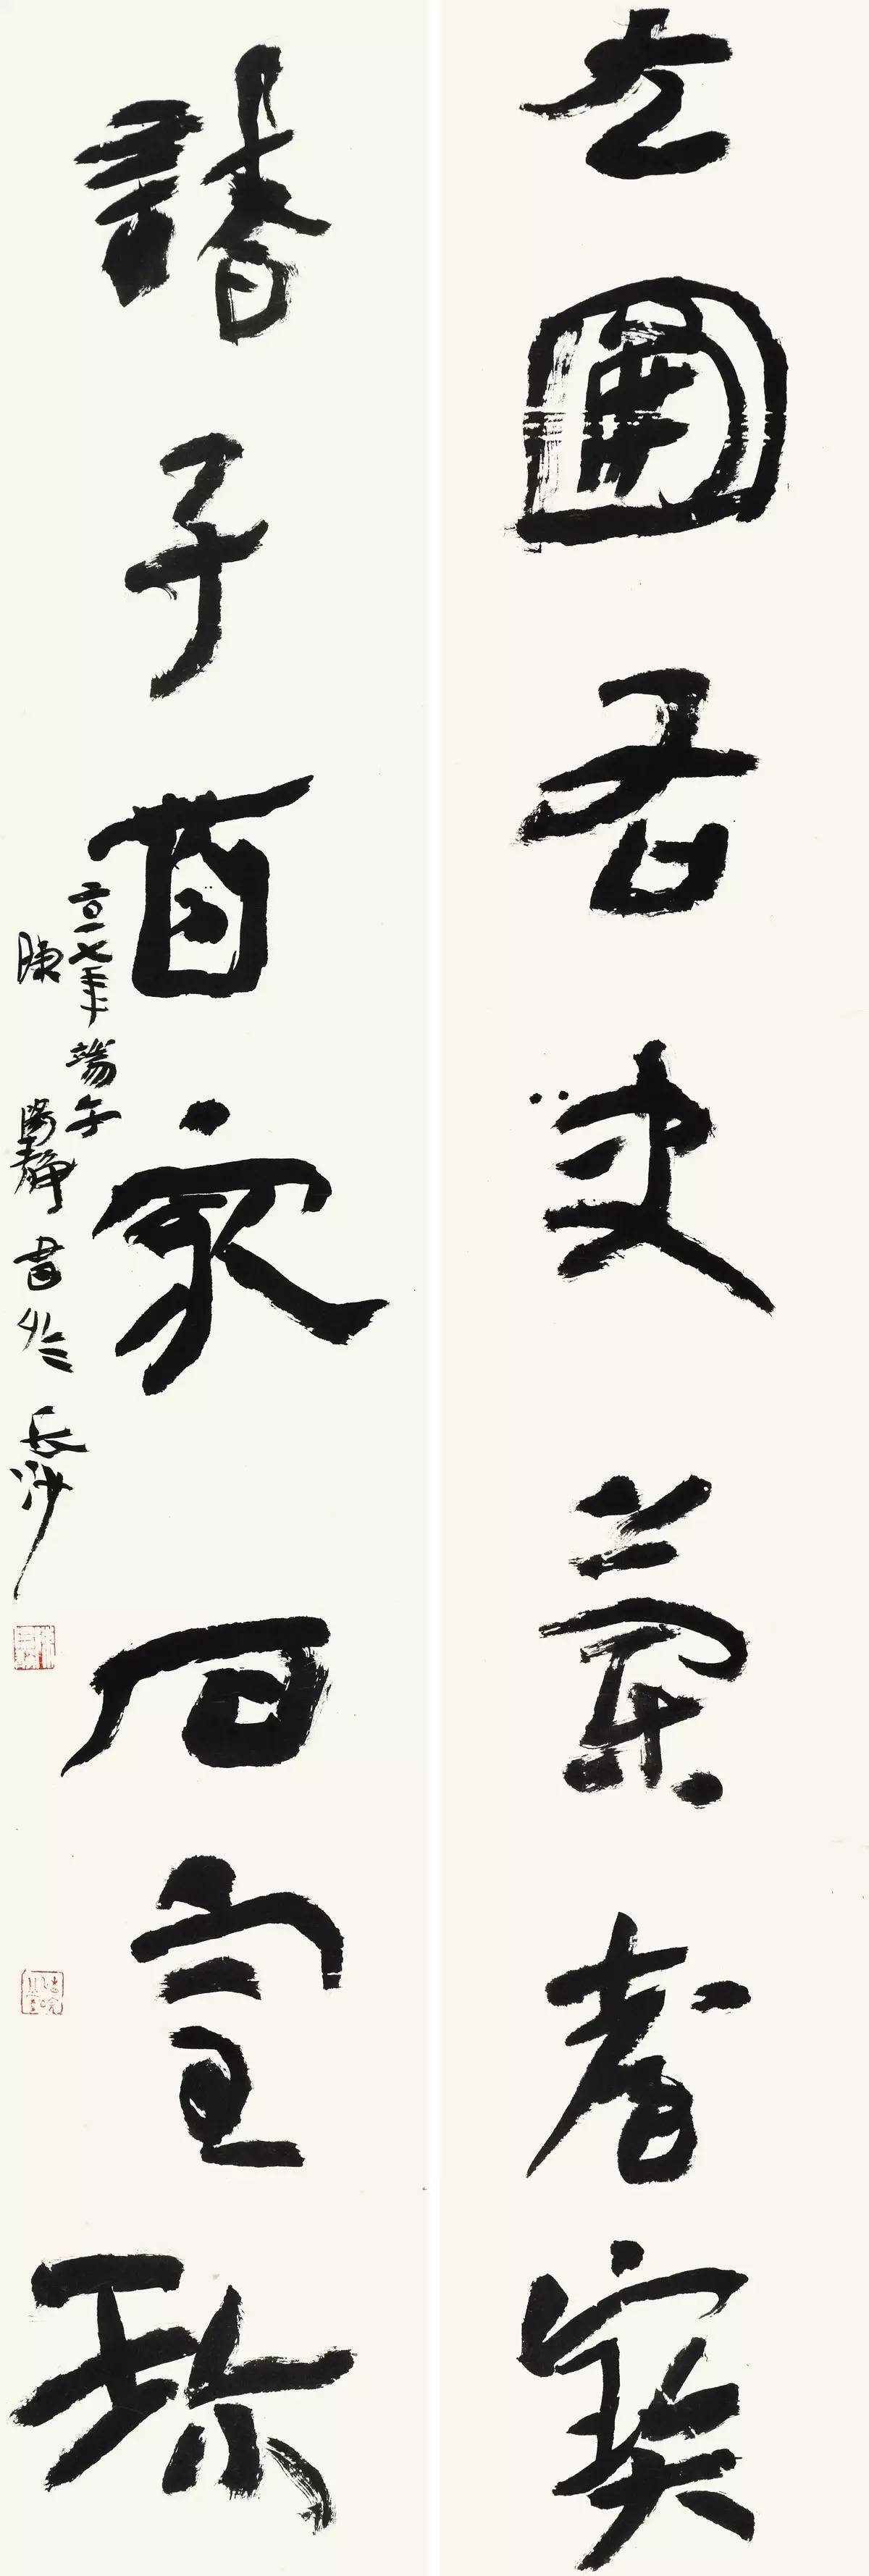 左圖右史蘭臺寶
諸子百家石室珍
二〇一七年端午
陳陽靜書於長沙